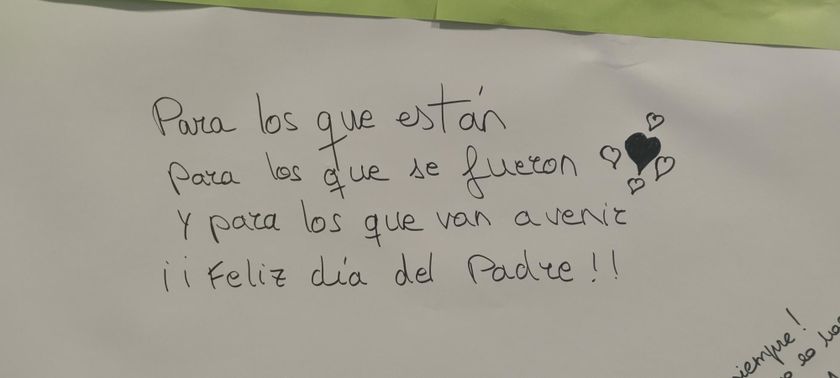 Para los que están
para los que se fueron
Y para los que van a venir
¡¡Feliz día del Padre!!